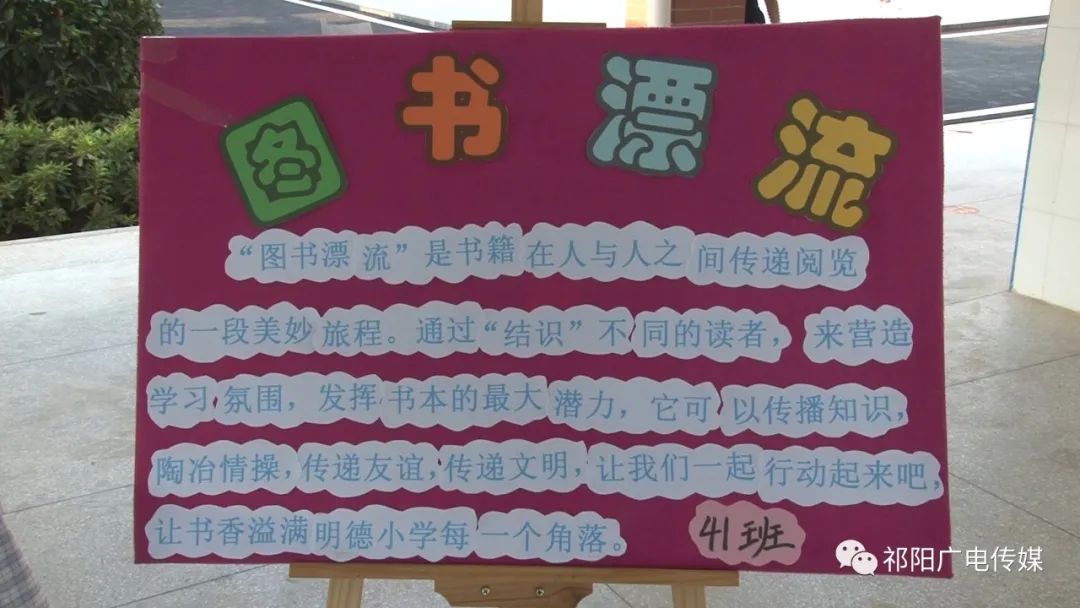 图书漂流
“图书漂流”是书籍在人与人之间传递阅览
的一段美妙旅程。通过“结识”不同的读者，来营造
学习氛围，发挥书本的最大潜力，它可以传播知识，
陶冶情操，传递友谊，传递文明，让我们一起行动起来吧，
让书香溢满明德小学每一个角落。
41班
祁阳广电传媒